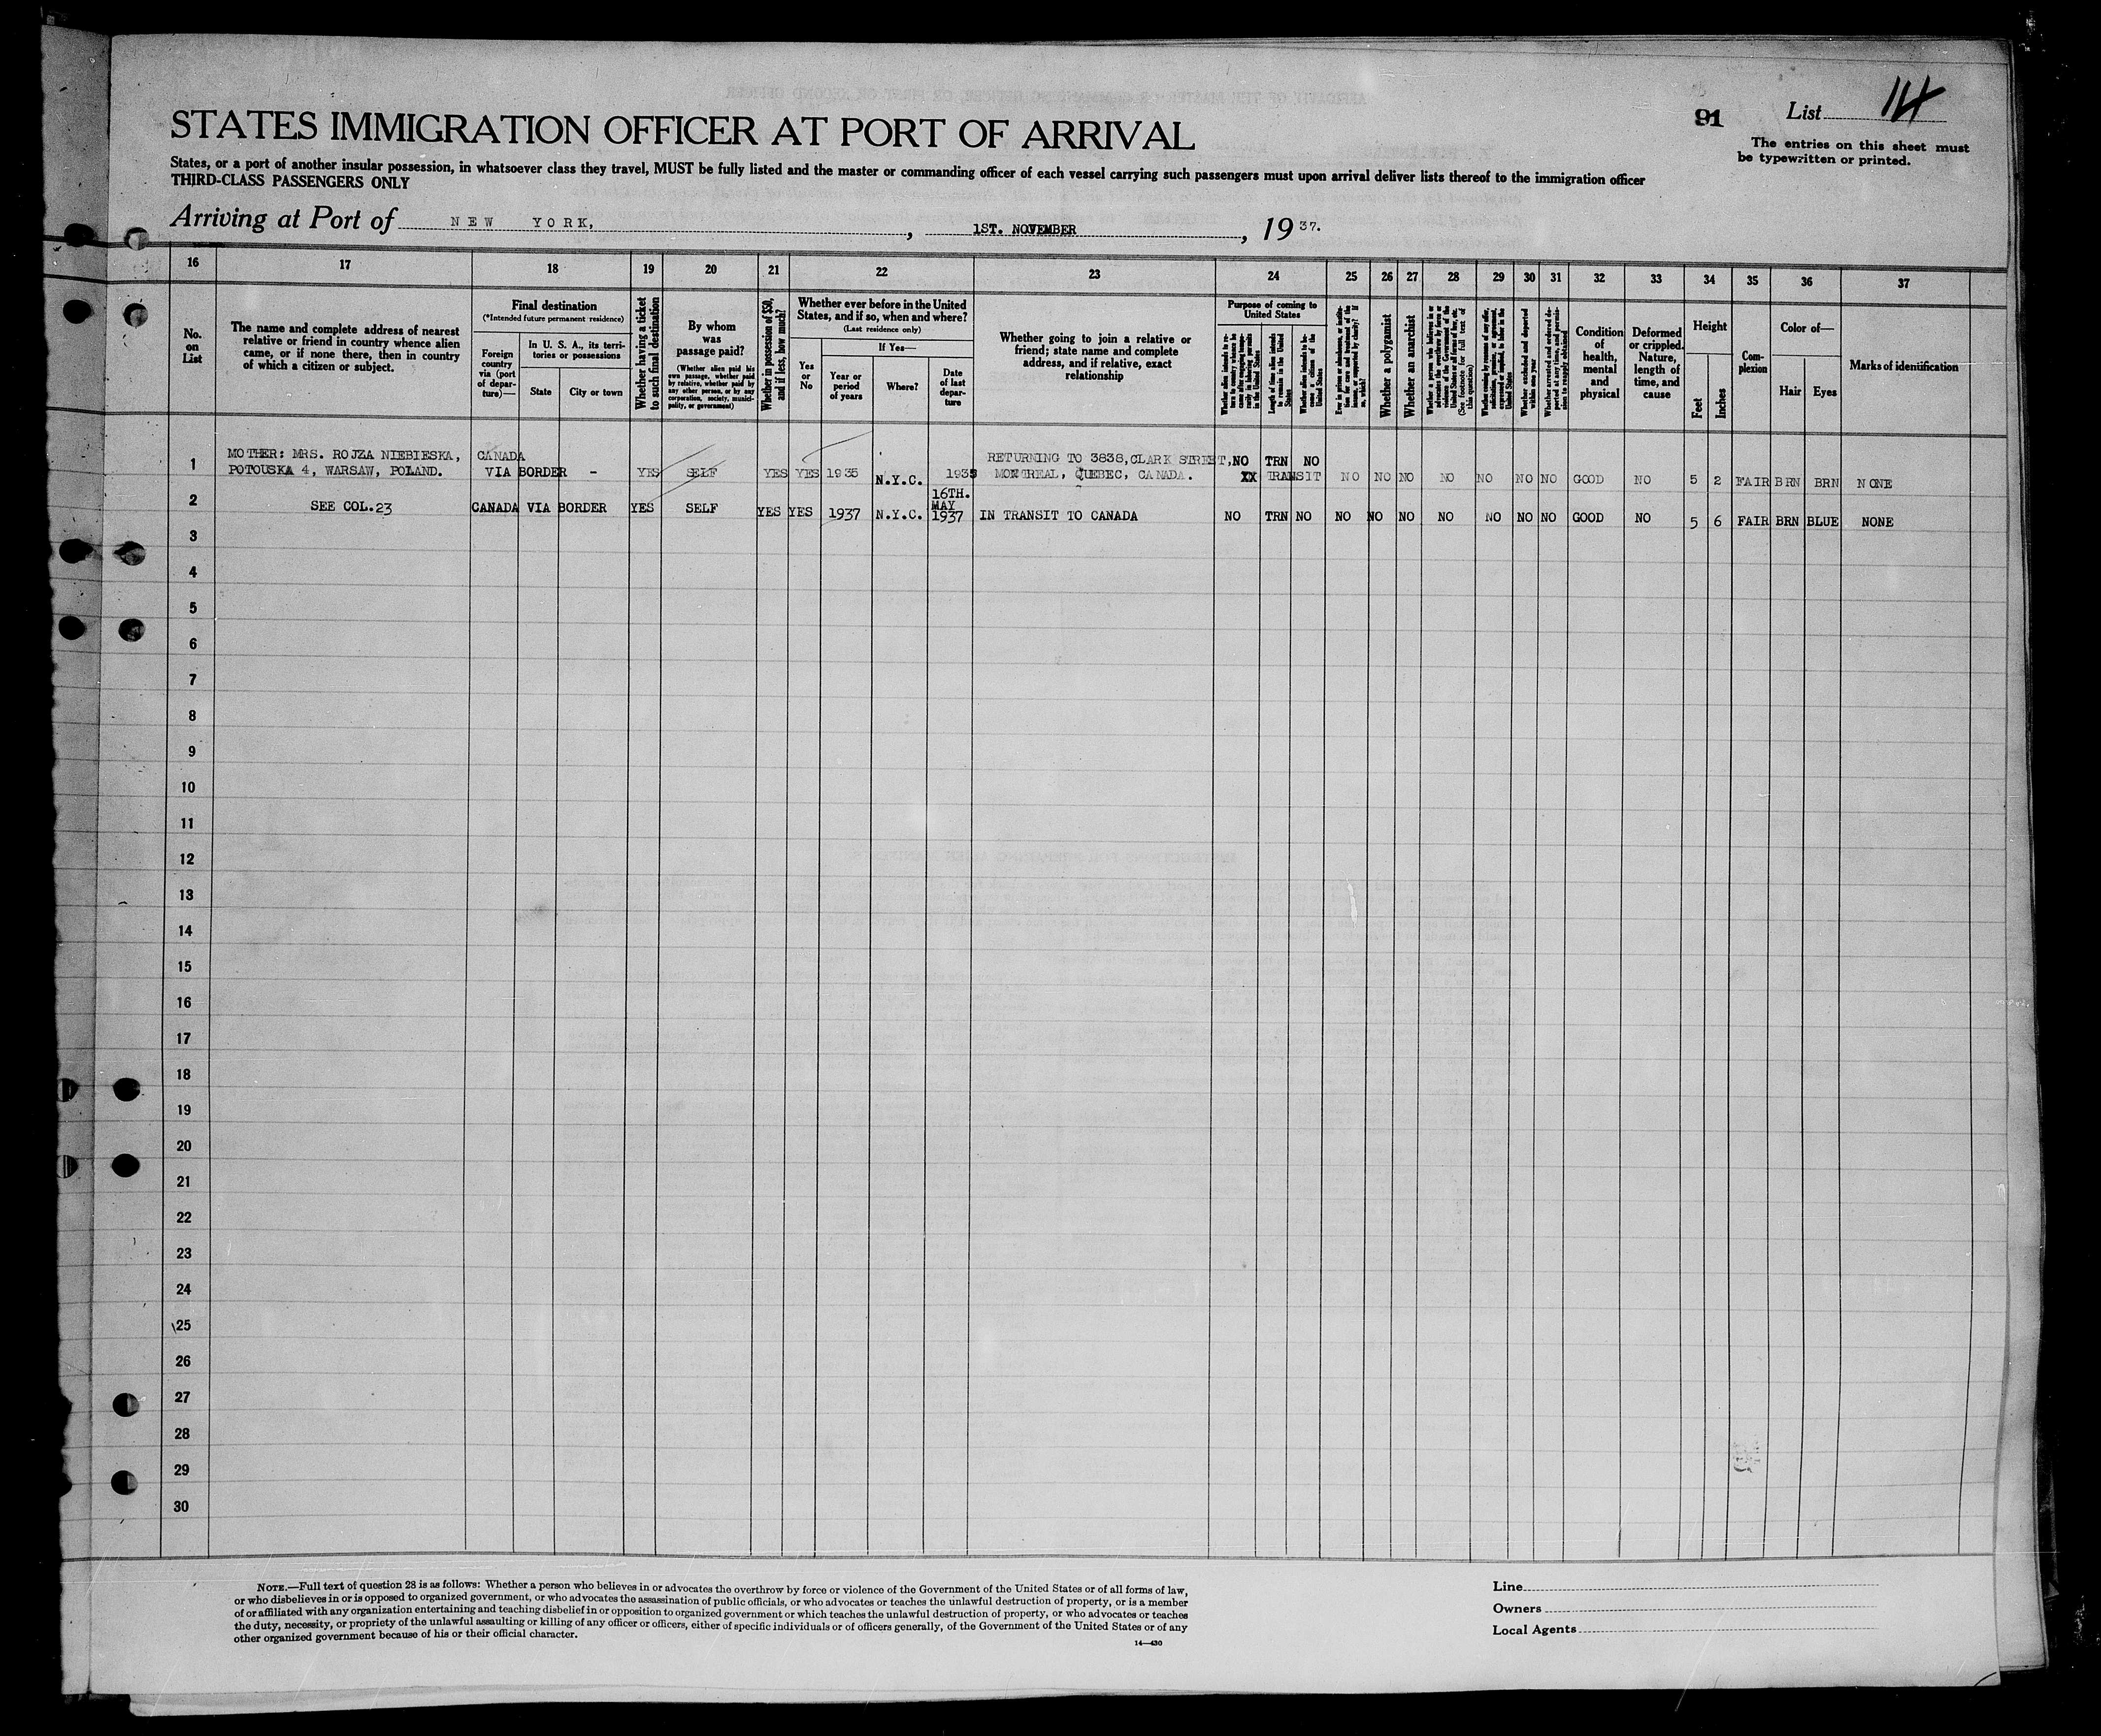 91
List 14
The entries on this sheet must
be typewritten or printed.
STATES IMMIGRATION OFFICER AT PORT OF ARRIVAL
States, or a port of another insular possession, in whatsoever class they travel, MUST be fully listed and the master or commanding officer of each vessel carrying such passengers must upon arrival deliver lists thereof to the immigration officer
THIRD-CLASS PASSENGERS ONLY
Arriving at Port of NEW YORK, , 1ST. NOVEMBER , 19 37.
16 17 18 19 20 21 22 23 24 25 26 27 28 29 30 31 32 33 34 35 36 37
No.
on
List
The name and complete address of nearest
relative or friend in country whence alien
came, or if none there, then in country
of which a citizen or subject.
Final destination
(*Intended future permanent residence)
Foreign
country
via (port
of depar-
ture)—
In U. S. A., its terri-
tories or possessions
State
City or town
Whether having a ticket
to such final destination
By whom
was
passage paid?
(Whether alien paid his
own passage, whether paid
by relative, whether paid by
any other person, or by any
corporation, society, munici-
pality, or government)
Whether in possession of $50,
and if less, how much?
Whether ever before in the United
States, and if so, when and where?
(Last residence only)
Yes
or
No
If Yes—
Year or
period
of years
Where?
Date
of last
depar-
ture
Whether going to join a relative or
friend; state name and complete
address, and if relative, exact
relationship
Purpose of coming to
United States
Whether alien intends to re-
turn to country whence he
came after engaging tempo-
rarily in laboring pursuits
in the United States
Length of time alien intends
to remain in the United
States
Whether alien intends to be-
come a citizen of the
United States
Ever in prison or almshouse, or institu-
tion for care and treatment of the
insane, or supported by charity? If
so, which?
Whether a polygamist
Whether an anarchist
Whether a person who believes in or
advocates the overthrow by force or
violence of the Government of the
United States or all forms of law, etc.
(See footnote for full text of
this question)
Whether coming by reason of any offer,
solicitation, promise, or agreement,
expressed or implied, to labor in the
United States
Whether excluded and deported
within one year
Whether arrested and ordered de-
ported at any time, and permis-
sion to reapply obtained
Condition
of
health,
mental
and
physical
Deformed
or crippled.
Nature,
length of
time, and
cause
Height
Feet
Inches
Com-
plexion
Color of—
Hair
Eyes
Marks of identification
MOTHER: MRS. ROJZA NIEBIESKA, CANADA RETURNING TO 3838, CLARK STREET, NO TRN NO
1 POTOUSKA 4, WARSAW, POLAND. VIA BORDER - YES SELF YES YES 1935 N.Y.C. 1935 MONTREAL, QUEBEC, CANADA. XX TRANSIT NO NO NO NO NO NO NO GOOD NO 5 2 FAIR BRN BRN NONE
16TH.
MAY
2 SEE COL.23 CANADA VIA BORDER YES SELF YES YES 1937 N.Y.C. 1937 IN TRANSIT TO CANADA NO TRN NO NO NO NO NO NO NO NO GOOD NO 5 6 FAIR BRN BLUE NONE
3
4
5
6
7
8
9
10
11
12
13
14
15
16
17
18
19
20
21
22
23
24
25
26
27
28
29
30
NOTE.—Full text of question 28 is as follows: Whether a person who believes in or advocates the overthrow by force or violence of the Government of the United States or of all forms of law,
or who disbelieves in or is opposed to organized government, or who advocates the assassination of public officials, or who advocates or teaches the unlawful destruction of property, or is a member
of or affiliated with any organization entertaining and teaching disbelief in or opposition to organized government or which teaches the unlawful destruction of property, or who advocates or teaches
the duty, necessity, or propriety of the unlawful assaulting or killing of any officer or officers, either of specific individuals or of officers generally, of the Government of the United States or of any
other organized government because of his or their official character.
14—430
Line
Owners
Local Agents